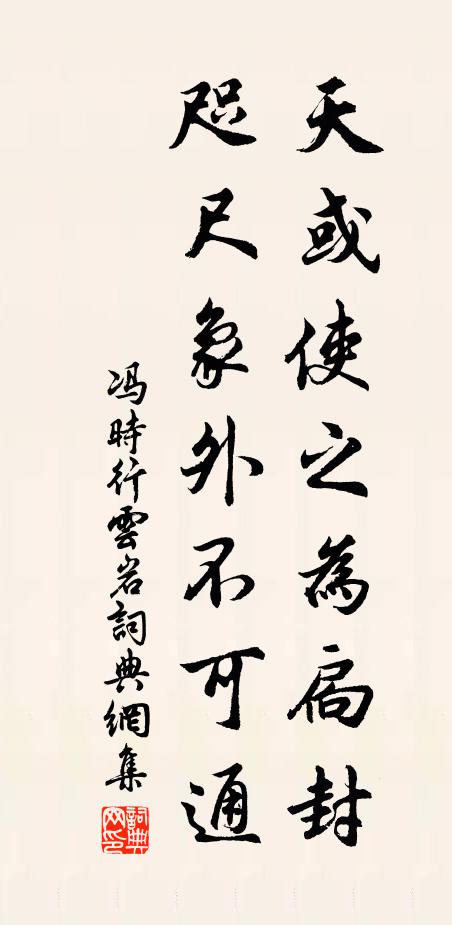 天或使之為扃封
咫尺象外不可通
冯時行雲岩詞典網集
詞典網印